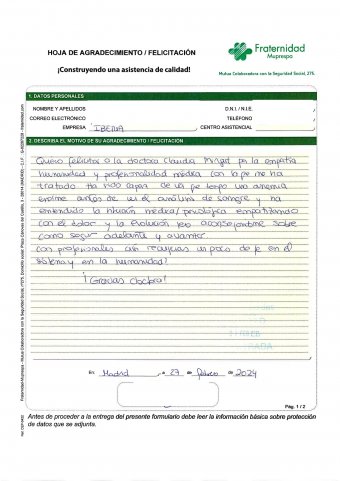 HOJA DE AGRADECIMIENTO / FELICITACIÓN
¡Construyendo una asistencia de calidad!
Fraternidad
Muprespa
Mutua Colaboradora con la Seguridad Social, 275
1. DATOS PERSONALES
NOMBRE Y APELLIDOS
D.N.I. / N.I.E.
CORREO ELECTRÓNICO
TELÉFONO
EMPRESA IBERIA, CENTRO ASISTENCIAL
2. DESCRIBA EL MOTIVO DE SU AGRADECIMIENTO / FELICITACIÓN
Quiero felicitar a la doctora Claudia por la empatía
humanidad y profesionalidad médica con la que me ha
tratado. Ha sido capaz de ver una anemia
enorme antes de ver el análisis de sangre y ha
entendido la situación médica/psicológica empatizando
con el dolor y la evolución aconsejandome sobre
como seguir adelante y avanzar.
Con profesionales así recuperas un poco de fe en el
sistema y en la humanidad!
¡Gracias doctora!
En Madrid, a 27 de febrero de 2024
Pág. 1 / 2
Antes de proceder a la entrega del presente formulario debe leer la información básica sobre protección
de datos que se adjunta.